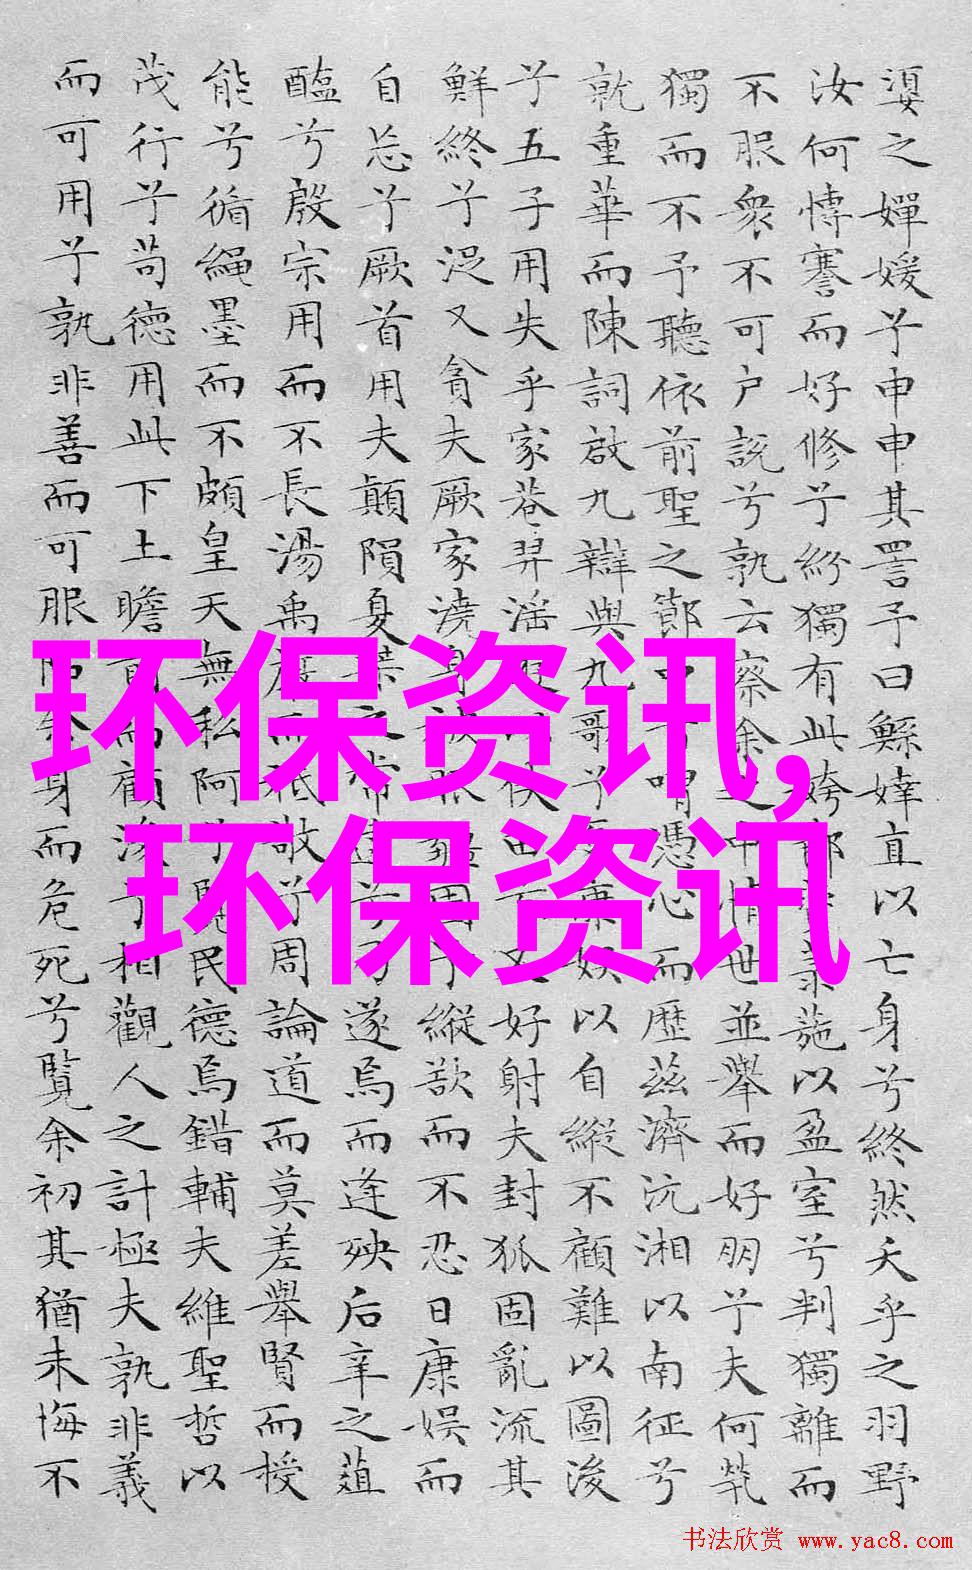 環保资讯,
环保资讯
嬃之嬋媛兮申申其詈予曰鯀婞直以亡身兮終然夭乎之羽野
汝何博謇而好修兮紛獨有此姱節薋菉葹以盈室兮判獨離而
不服衆不可户說兮孰云察余之中情世並舉而好朋兮夫何煢
獨而不予聽依前聖之節中兮喟憑心而歷茲濟沅湘以南征兮
就重華而陳詞啟九辯與九哥兮夏康娱以自縱不顧難以圖後
兮五子用失乎家巷羿淫遊以佚田兮又好射夫封狐固亂流其
鮮終兮浞又貪夫厥家澆身被服強圉兮縱欲而不忍日康娱而
自忘兮厥首用夫顛隕夏桀之常違兮乃遂焉而逢殃后辛之葅
醢兮殷宗用而不長湯禹嚴而祗敬兮周論道而莫差舉賢而授
能兮循繩墨而不頗皇天無私阿兮覽民德焉錯輔夫維聖哲以
茂行兮苟德用此下土瞻前而顧後兮相觀人之計極夫孰非義
而可用兮孰非善而可服阽余身而危死兮覽余初其猶未悔不
书法欣赏 www.yac8.com